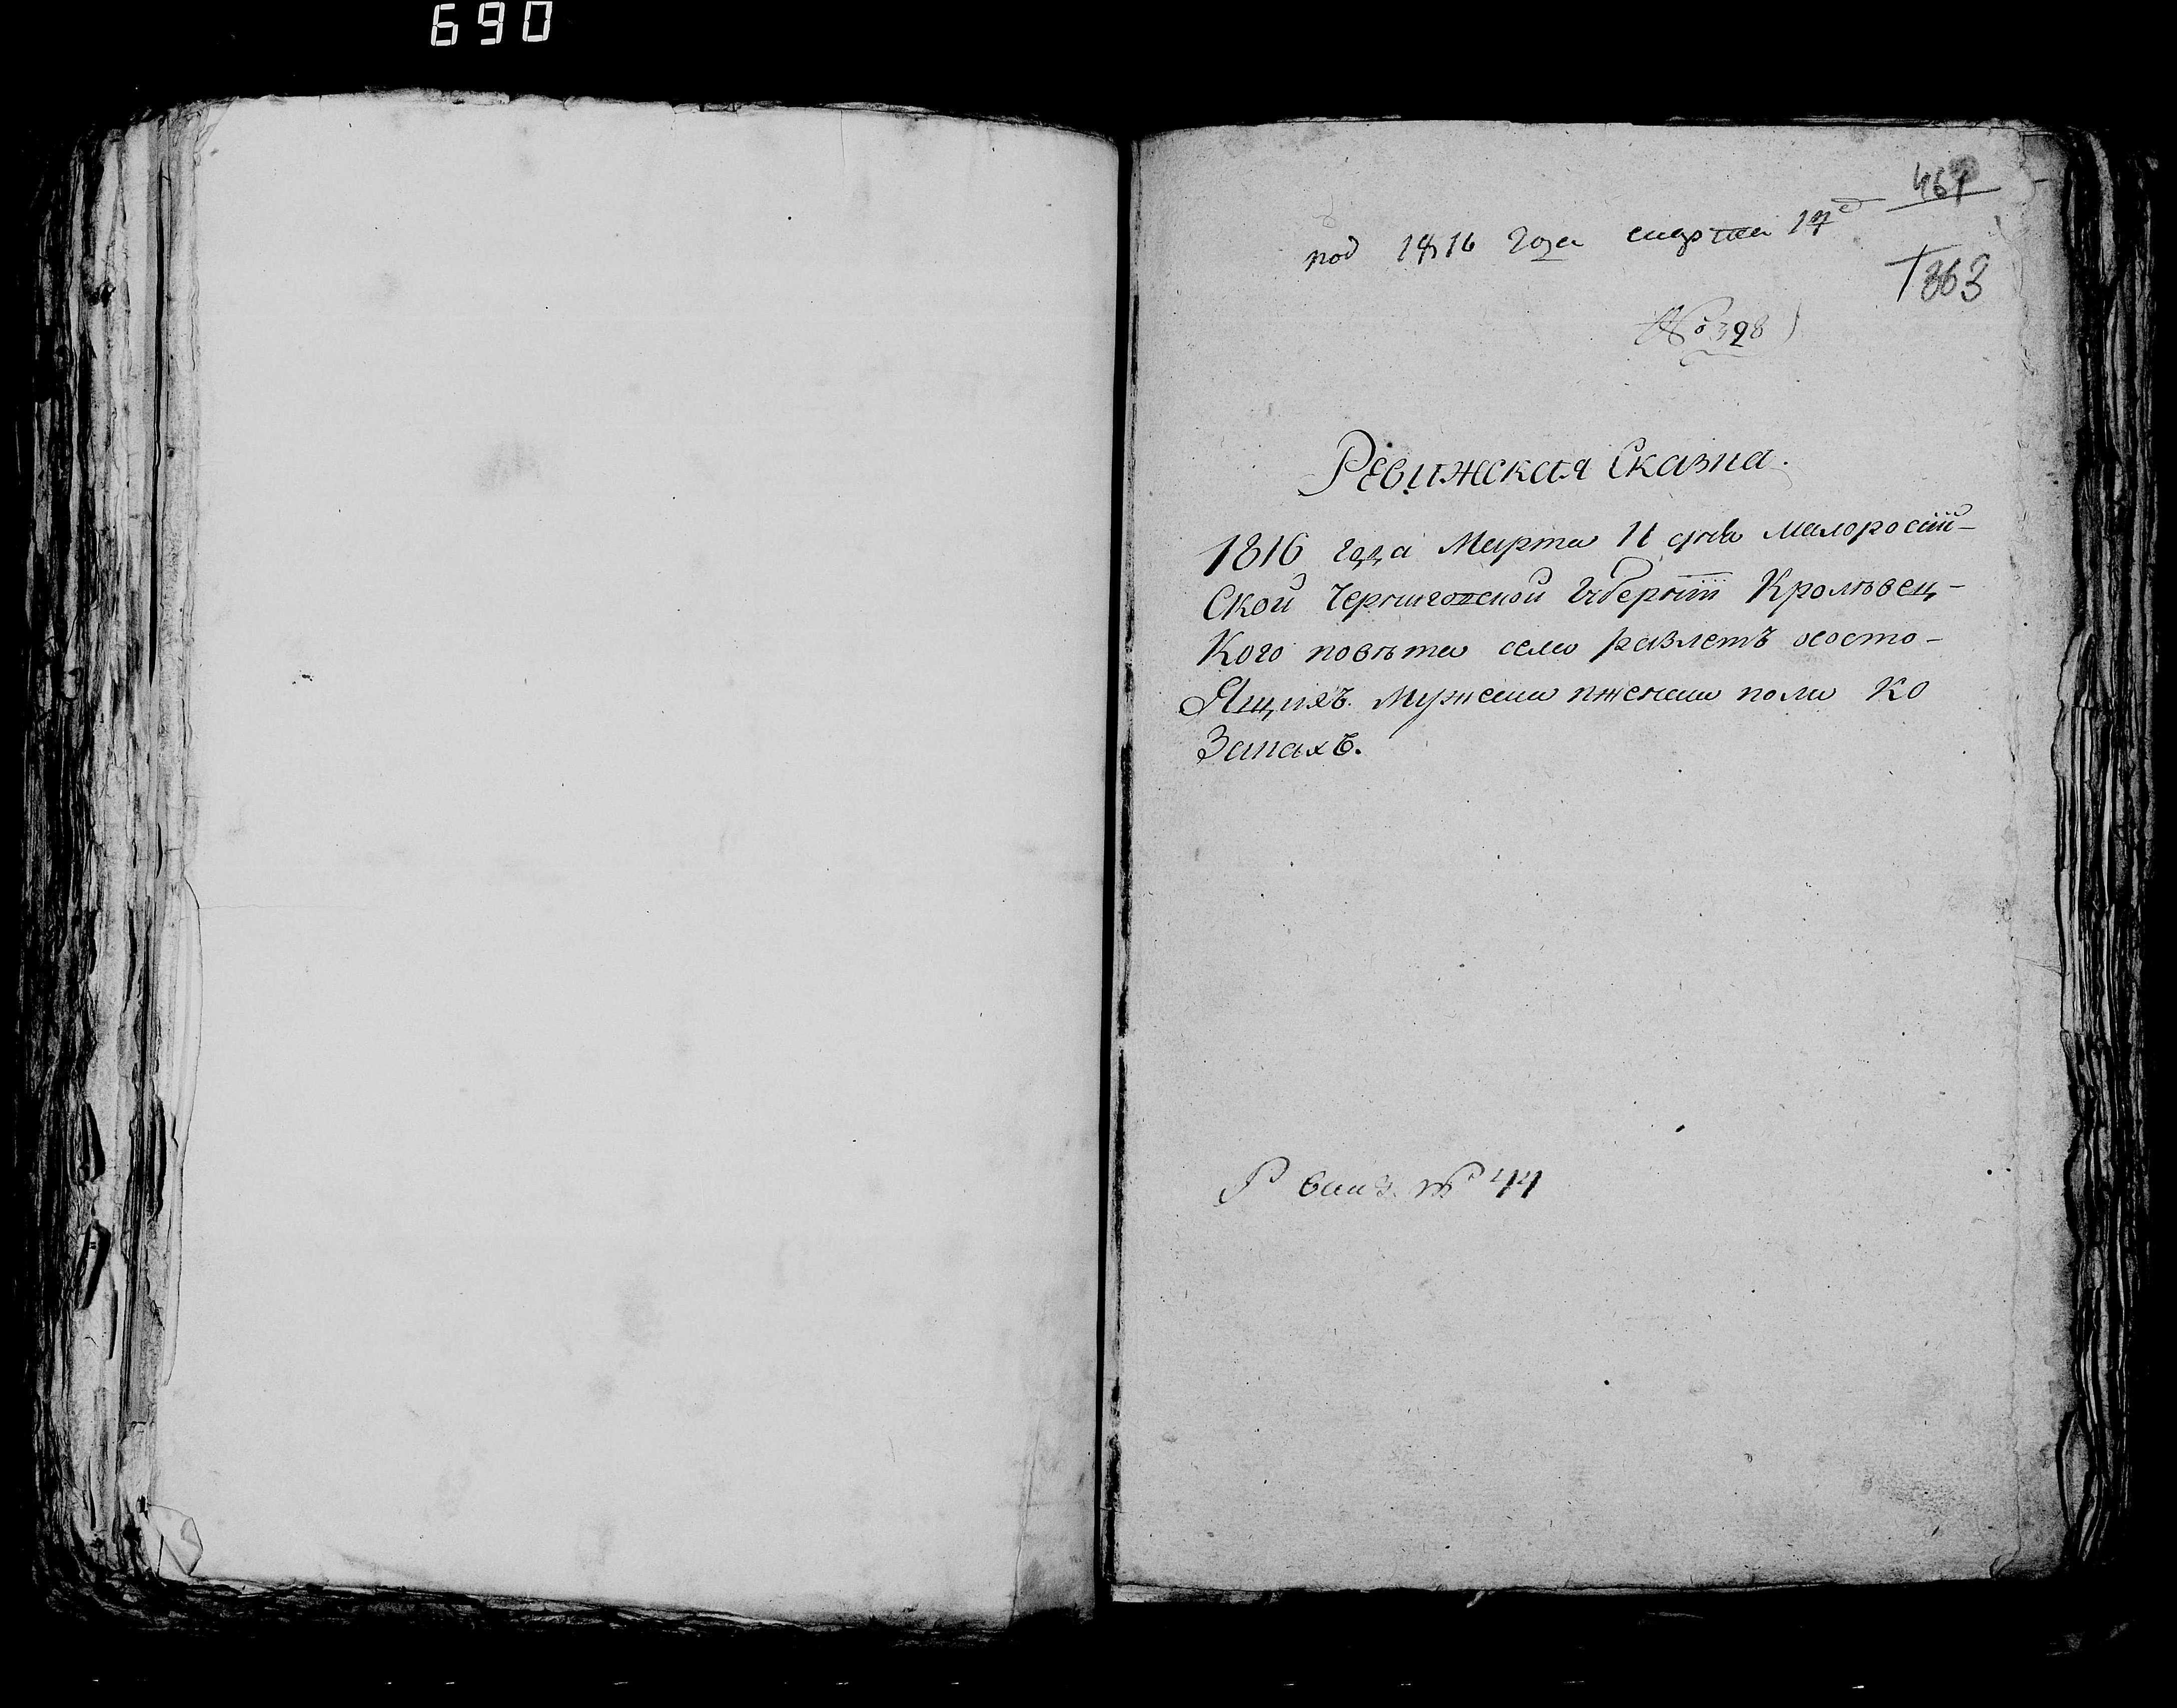 690
461
под 1816 года марта 17е
363
№ 398
Ревижская Сказка.
1816 года Марта 11 дня Малоросiй-
Ской Черниговской Губернiи Кролѣвец-
Кого повѣта села Равлетъ ососто-
Ящихъ. Мужеска иженска пола Ко
Закахъ.
№ 44